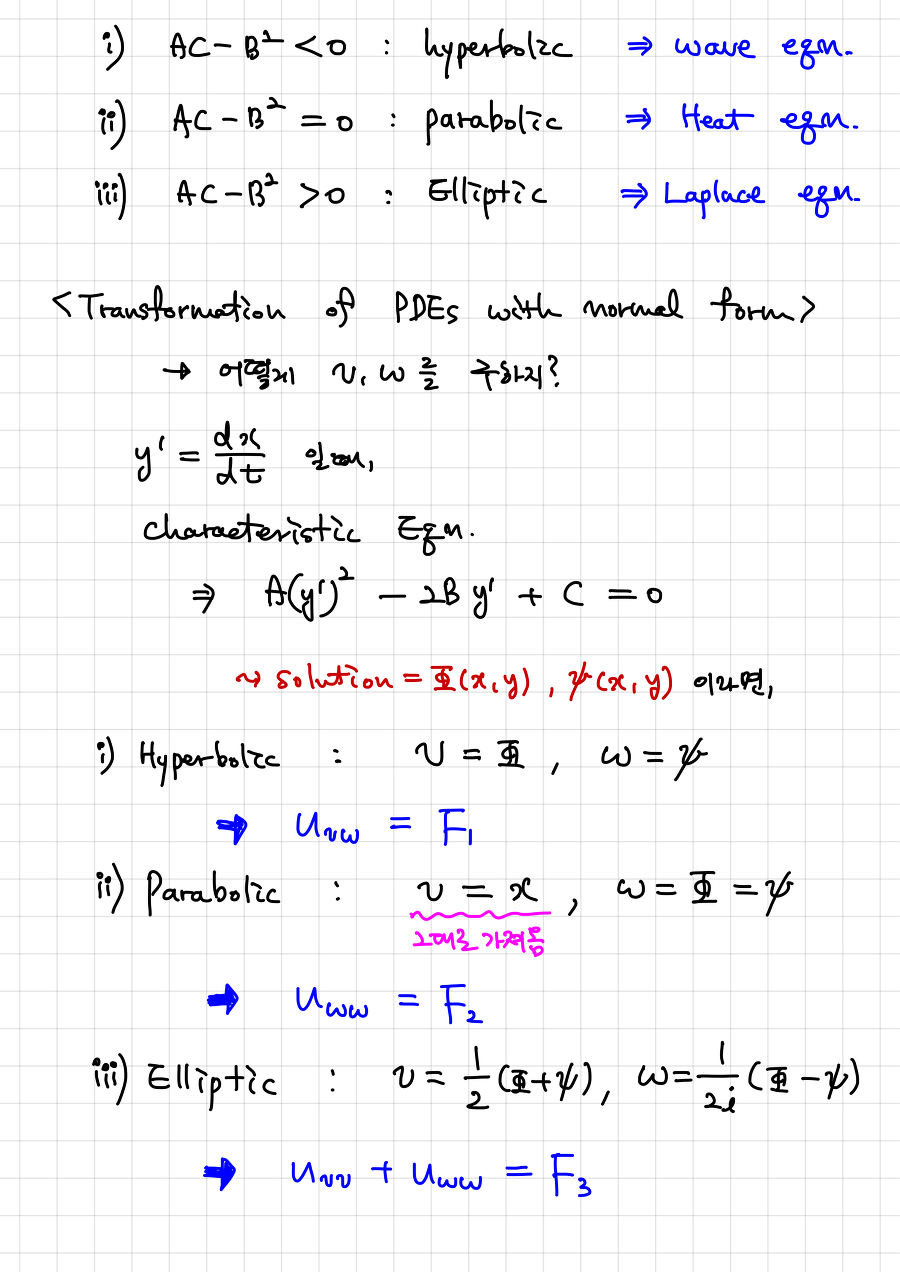 i) AC - B² < 0 : hyperbolic ⇒ wave eqn.
ii) AC - B² = 0 : parabolic ⇒ Heat eqn.
iii) AC - B² > 0 : Elliptic ⇒ Laplace eqn.
<Transformation of PDEs with normal form>
→ 어떻게 v, w를 구하지?
y' = dx/dt 일때,
characteristic Eqn.
⇒ A(y')² - 2By' + C = 0
↝ solution = Φ(x,y), ψ(x,y) 이라면,
i) Hyperbolic : v = Φ, w = ψ
➡ u_vw = F₁
ii) Parabolic : v = x, w = Φ = ψ
그대로 가져옴
➡ u_ww = F₂
iii) Elliptic : v = 1/2 (Φ+ψ), w = 1/2i (Φ-ψ)
➡ u_vv + u_ww = F₃